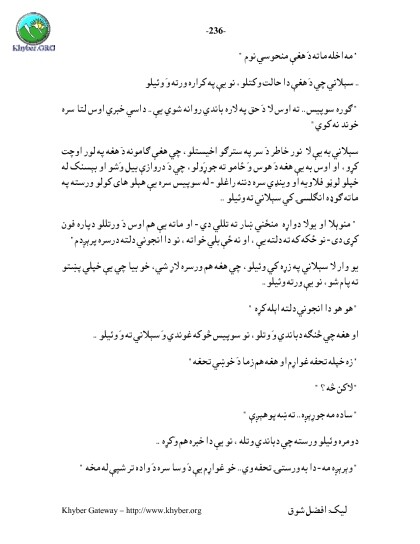 Khyber.ORG
-236-
" مه اخله ماته دَ هغې منحوسې نوم "
.. سېلاني چې دَ هغې دا حالت وکتلو ، نو يې په کراره ورته وَ وئيلو
"ګوره سوپيس .. ته اوس لا دَ حق په لاره باندې روانه شوې يې .. داسې خبرې اوس لتا سره
خوند نه کوي "
سېلاني به يې لا نور خاطر دَ سر په سترګو اخيستلو ، چې هغې ګامونه دَ هغه په لور اوچت
کړو ، او اوس به يې هغه دَ هوس وَ څامو ته جوړَولو ، چې دَ دروازې بيل وَشو او بېسنک له
خپلو لوڼو فلاويه او وينډي سره دننه راغلو - له سوپيس سره يې هېلو هاى کولو ورسته په
ماته ګوډه انګلسۍ کې سېلاني ته وئيلو ..
" منوېلا او يولا دواړه منځنې ښار ته تللې دي - او ماته يې هم اوس دَ ورتللو دپاره فون
کړى دى - نو ځکه که ته دلته يې ، او نه ځې بلې خوا ته ، نو دا انجونې دلته درسره پرېږدم "
يو وار لا سېلاني په زړه کې وئيلو ، چې هغه هم ورسره لاړ شي ، خو بيا چې يې خيلې پښتو
ته پام شو ، نو يې ورته وئيلو ..
" هو هو دا انجونې دلته اېله کړه "
او هغه چې څنګه دباندې وَ وتلو ، نو سوپيس څوکه غوندې وَ سېلاني ته وَ وئيلو ..
" زه خپله تحفه غواړم او هغه هم زما دَ خوښې تحفه "
" لاکن څه ؟ "
" ساده مه جوړېږه .. ته ښه پوهېږې "
دومره وئيلو ورسته چې دباندې وتله ، نو يې دا خبره هم وکړه ..
" وېرېږه مه - دا به ورستۍ تحفه وي .. خو غواړم يې دَ وسا سره دَ واده تر شپې له مخه "
ليک: افضل شوق
Khyber Gateway – http://www.khyber.org